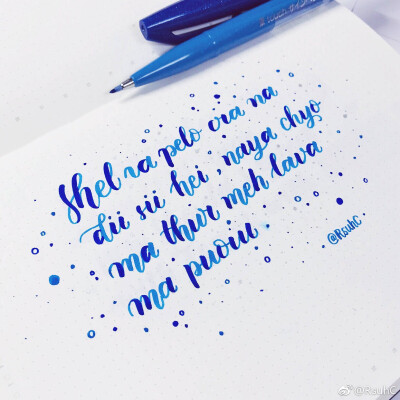 Shel ra pelo ora na
dii sii hei, naya chyo
ma thur meh lava
ma puoiu
@RauhC
@RauhC